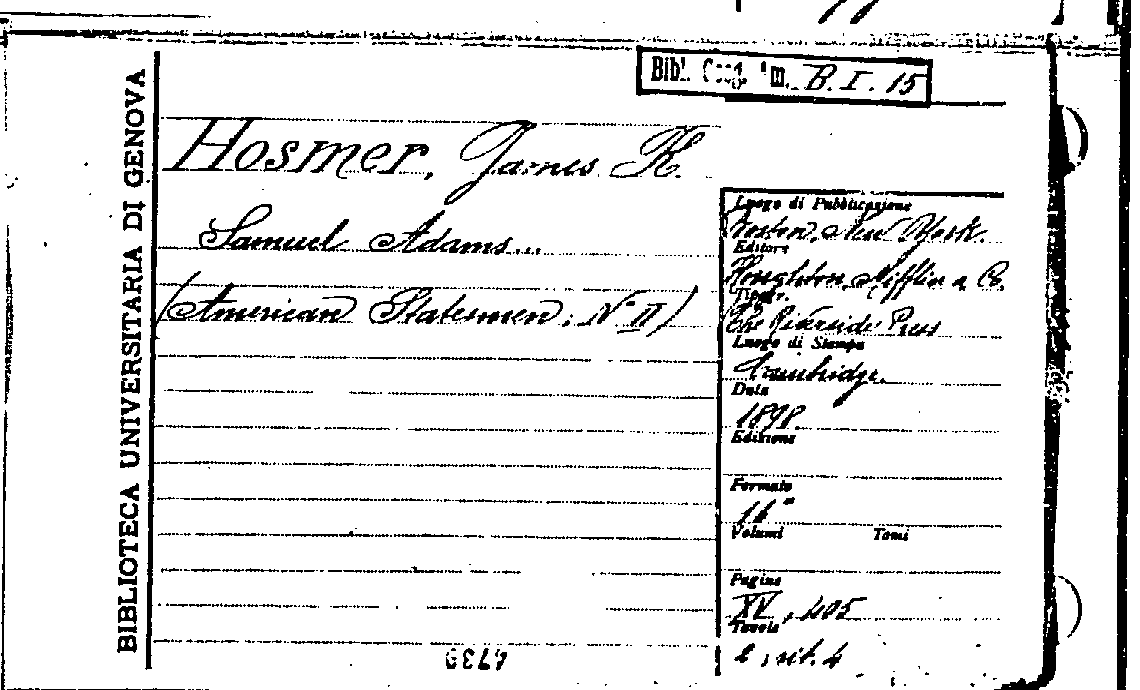 Bibl. B. I. 15
BIBLIOTECA UNIVERSITARIA DI GENOVA
Hosmer, James K.
Samuel Adams...
(American Statesmen; N° II)
Luogo di Pubblicazione
Boston, New York.
Editore
Houghton, Mifflin & Co.
Tipogr.
The Riverside Press
Luogo di Stampa
Cambridge.
Data
1898
Edizione
Formato
16°
Volumi Tomi
Pagine
XV, 405
Tavole
rit. 4
4739